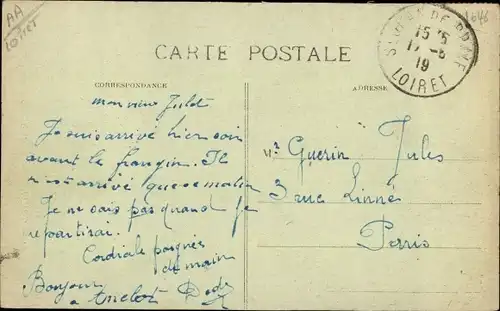 AA
Loiret
CARTE POSTALE
CORRESPONDANCE
ADRESSE
15 15
17 -6
19
LOIRET
mon vieux Julot
Je suis arrivé hier soir
avant le frangin. Il
n'est arrivé que ce matin
Je ne sais pas quand je
repartirai.
Cordiale poignée
de main
Bonjour
a Dédé
Mr Guerin Jules
3 rue Linné
Paris